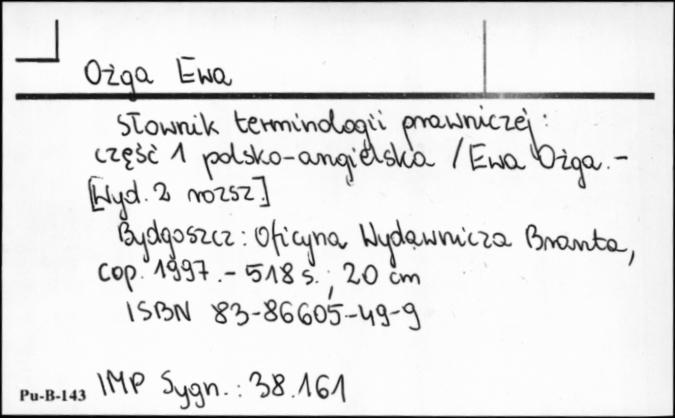 Ożga Ewa
Słownik terminologii prawniczej:
część 1 polsko-angielska / Ewa Ożga.-
[Wyd. 2 rozsz.]
Bydgoszcz: Oficyna Wydawnicza Branta,
cop. 1997.- 518 s.; 20 cm
ISBN 83-86605-49-9
Pu-B-143 IMP Sygn.: 38.161